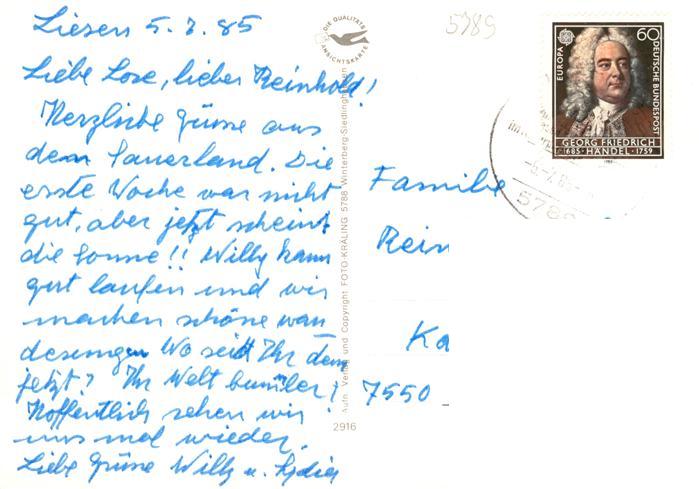 Liesen 5.7.85
Liebe Lore, lieber Reinhold!
Herzliche Grüsse aus
dem Sauerland. Die
erste Woche war nicht
gut, aber jetzt scheint
die Sonne!! Willy kann
gut laufen und wir
machen schöne wan
derungen Wo seid Ihr denn
jetzt? Ihr Welt bumler!
Hoffentlich sehen wir
uns mal wieder.
Liebe Grüsse Willy u.
DIE QUALITÄTS
ANSICHTSKARTE
Aufn. Verlag und Copyright FOTO-KRÄLING 5788 Winterberg-Siedlinghausen
2916
5789
60
EUROPA
DEUTSCHE BUNDESPOST
GEORG FRIEDRICH
1685 HÄNDEL 1759
578
Familie
Rein
Ka
7550